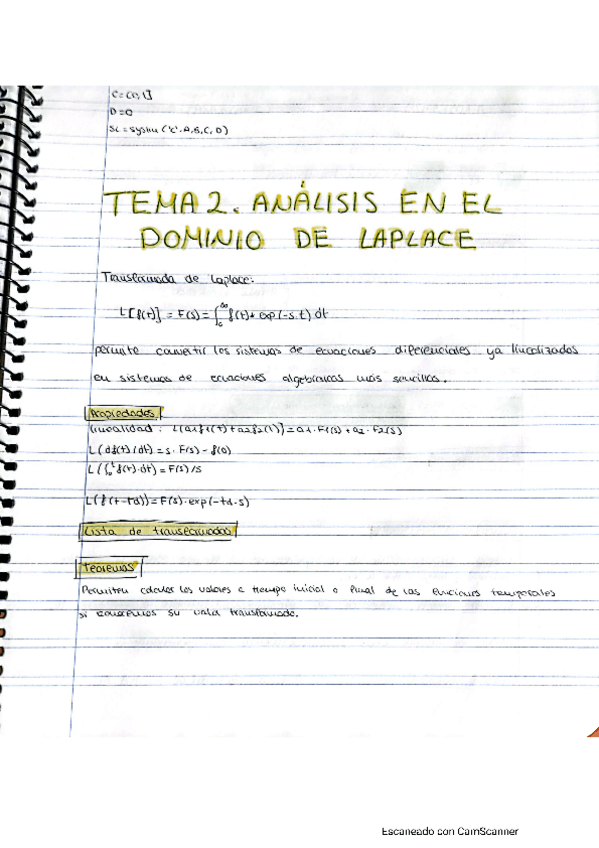 C=[0,1]
D=0
SL=syslin('c',A,B,C,D)
TEMA 2. ANÁLISIS EN EL
DOMINIO DE LAPLACE
Transformada de Laplace:
L[f(t)] = F(s) = ∫₀^∞ f(t)* exp(-s.t) dt
permite convertir los sistemas de ecuaciones diferenciales ya linealizados
en sistemas de ecuaciones algebraicas más sencillas.
Propiedades
linealidad: L(a1f1(t)+a2f2(t))=a1·F1(s)+a2·F2(s)
L(df(t)/dt)=s·F(s)-f(0)
L(∫₀^t f(t)·dt)=F(s)/s
L(f(t-td))=F(s)·exp(-td·s)
Lista de transformadas
Teoremas
Permiten calcular los valores a tiempo inicial o final de las funciones temporales
si conocemos su valor transformado.
Escaneado con CamScanner